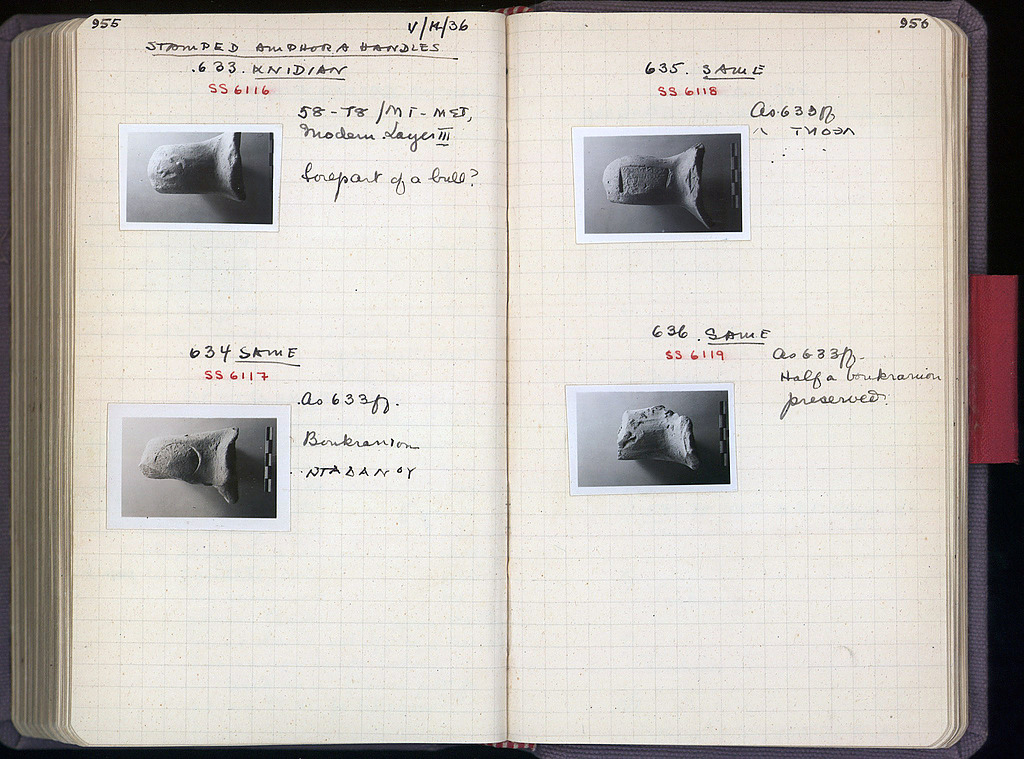 955
V/14/36
STAMPED AMPHORA HANDLES
.633. KNIDIAN
SS 6116
58 - T8 / MT - MΣT,
Modern Layer III
Forepart of a bull?
634 SAME
SS 6117
As 633ff.
Boukranion
956
635. SAME
SS 6118
As 633ff
636. SAME
SS 6119
As 633ff.
Half a boukranion
preserved.